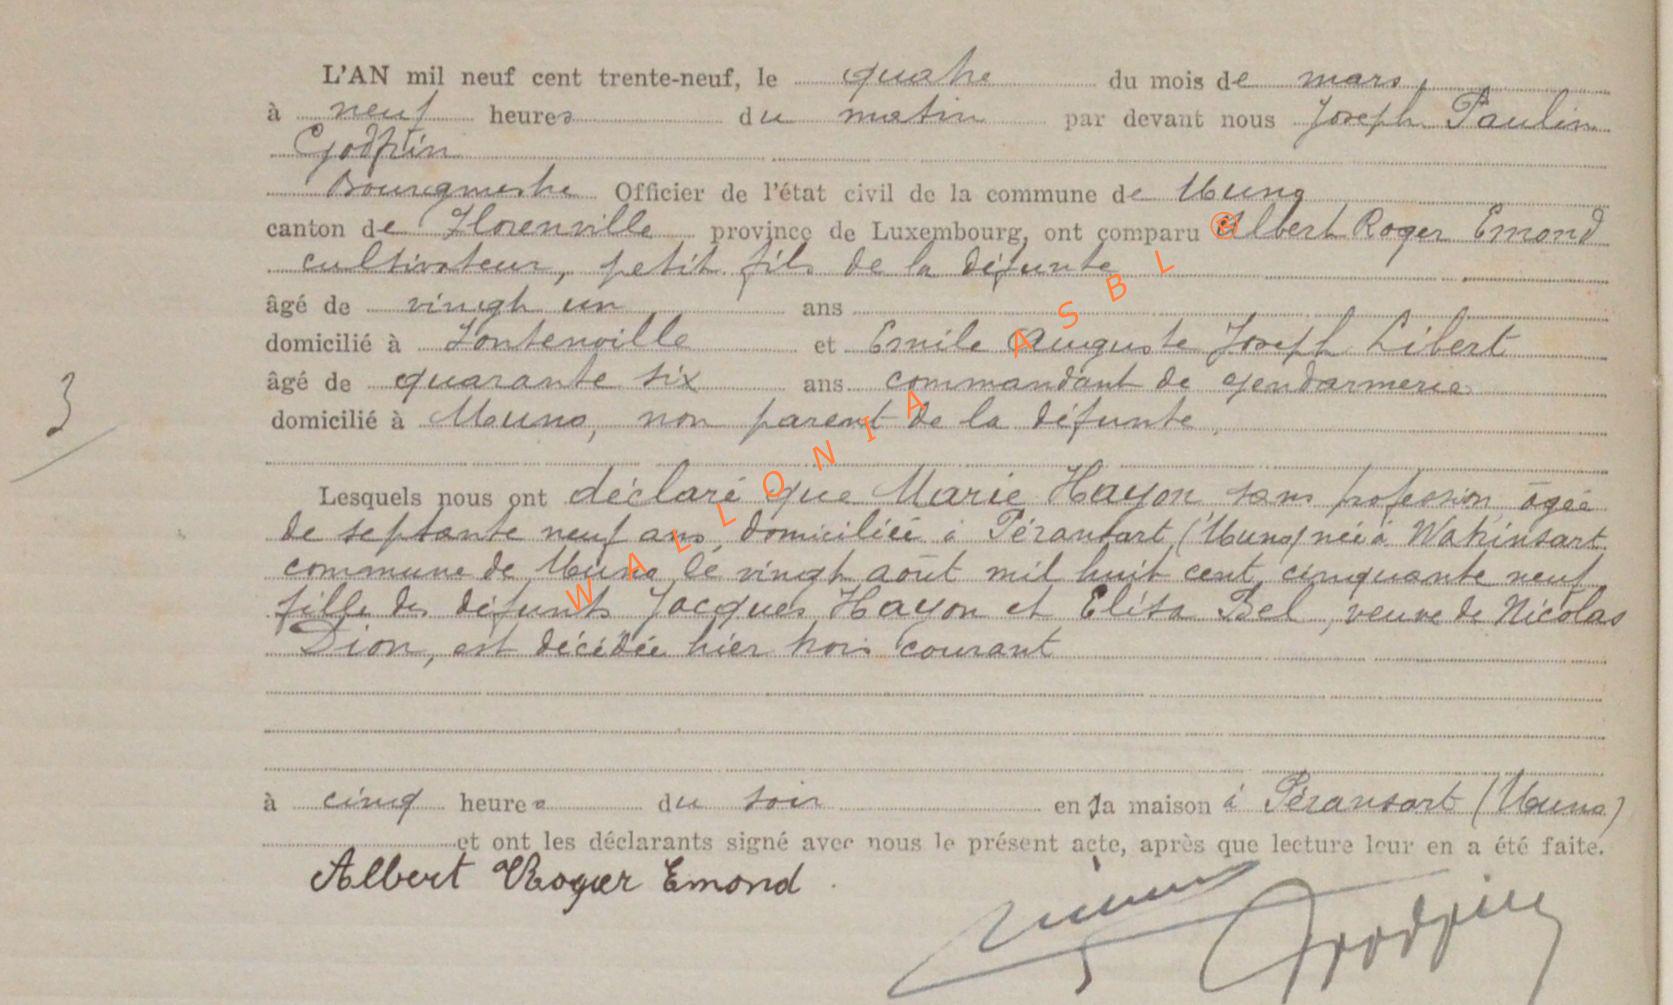 L'AN mil neuf cent trente-neuf, le quatre du mois de mars,
à neuf heures du matin par devant nous Joseph Paulin
Godfrin
Bourgmestre Officier de l'état civil de la commune de Muno
canton de Florenville province de Luxembourg, ont comparu Albert Roger Emond
cultivateur, petit fils de la défunte
âgé de vingt un ans
domicilié à Fontenoille et Emile Auguste Joseph Libert
âgé de quarante six ans commandant de gendarmerie
domicilié à Muno, non parent de la défunte,
3
Lesquels nous ont déclaré que Marie Hayon, sans profession, âgée
de septante neuf ans domiciliée à Péransart (Muno) née à Watrinsart,
commune de Muno le vingt août mil huit cent cinquante neuf
fille des défunts Jacques Hayon et Elisa Bel, veuve de Nicolas
Dion, est décédée hier trois courant
à cinq heures du soir en la maison à Péransart (Muno)
et ont les déclarants signé avec nous le présent acte, après que lecture leur en a été faite.
Albert Roger Emond
Godfrin
@ WALLONIA ASBL